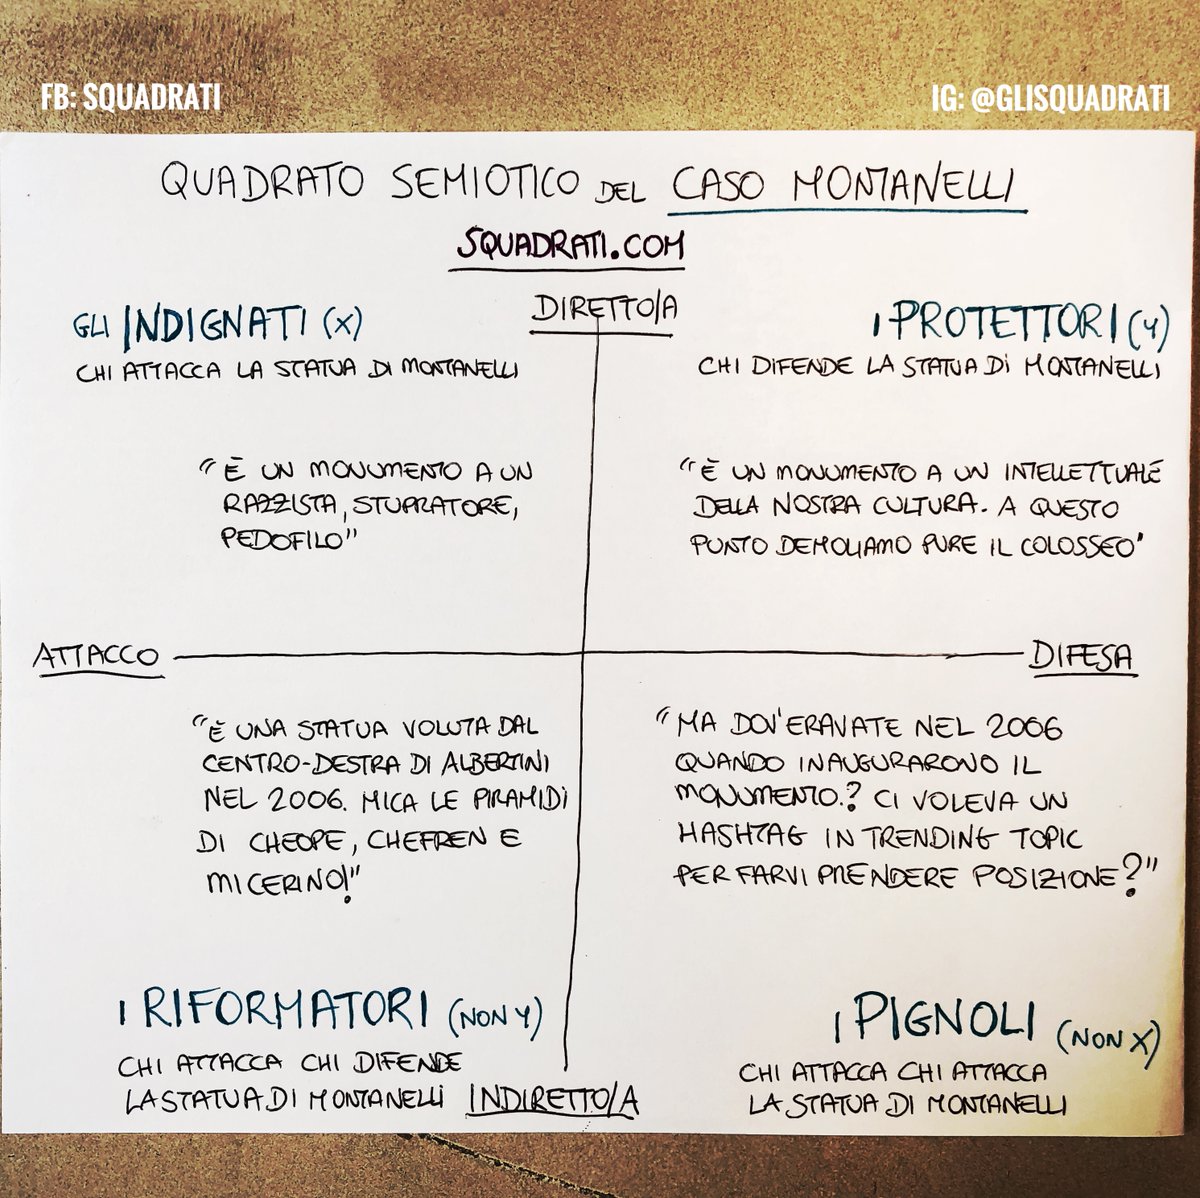 FB: SQUADRATI
IG: @GLISQUADRATI
QUADRATO SEMIOTICO DEL CASO MONTANELLI
SQUADRATI.COM
DIRETTO/A
GLI INDIGNATI (X)
CHI ATTACCA LA STATUA DI MONTANELLI
I PROTETTORI (Y)
CHI DIFENDE LA STATUA DI MONTANELLI
"È UN MONUMENTO A UN
RAZZISTA, STUPRATORE,
PEDOFILO"
"È UN MONUMENTO A UN INTELLETTUALE
DELLA NOSTRA CULTURA. A QUESTO
PUNTO DEMOLIAMO PURE IL COLOSSEO"
ATTACCO
DIFESA
"È UNA STATUA VOLUTA DAL
CENTRO-DESTRA DI ALBERTINI
NEL 2006. MICA LE PIRAMIDI
DI CHEOPE, CHEFREN E
MICERINO!"
"MA DOV'ERAVATE NEL 2006
QUANDO INAUGURARONO IL
MONUMENTO.? CI VOLEVA UN
HASHTAG IN TRENDING TOPIC
PER FARVI PRENDERE POSIZIONE?"
I RIFORMATORI (NON Y)
CHI ATTACCA CHI DIFENDE
LA STATUA DI MONTANELLI
INDIRETTO/A
I PIGNOLI (NON X)
CHI ATTACCA CHI ATTACCA
LA STATUA DI MONTANELLI